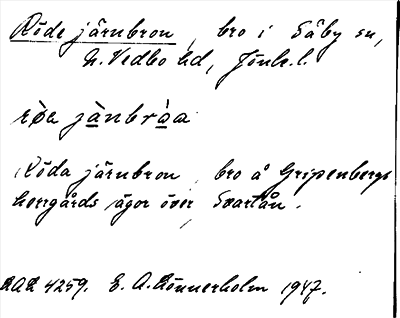 Röde järnbron, bro i Säby sn,
N. Vedbo hd, Jönk. l.
rø̀a jä̀nbrà̱a
Röda järnbron, bro å Gripenbergs
herrgårds ägor över Svartån.
4259. E. A. Rönnerholm 1947.